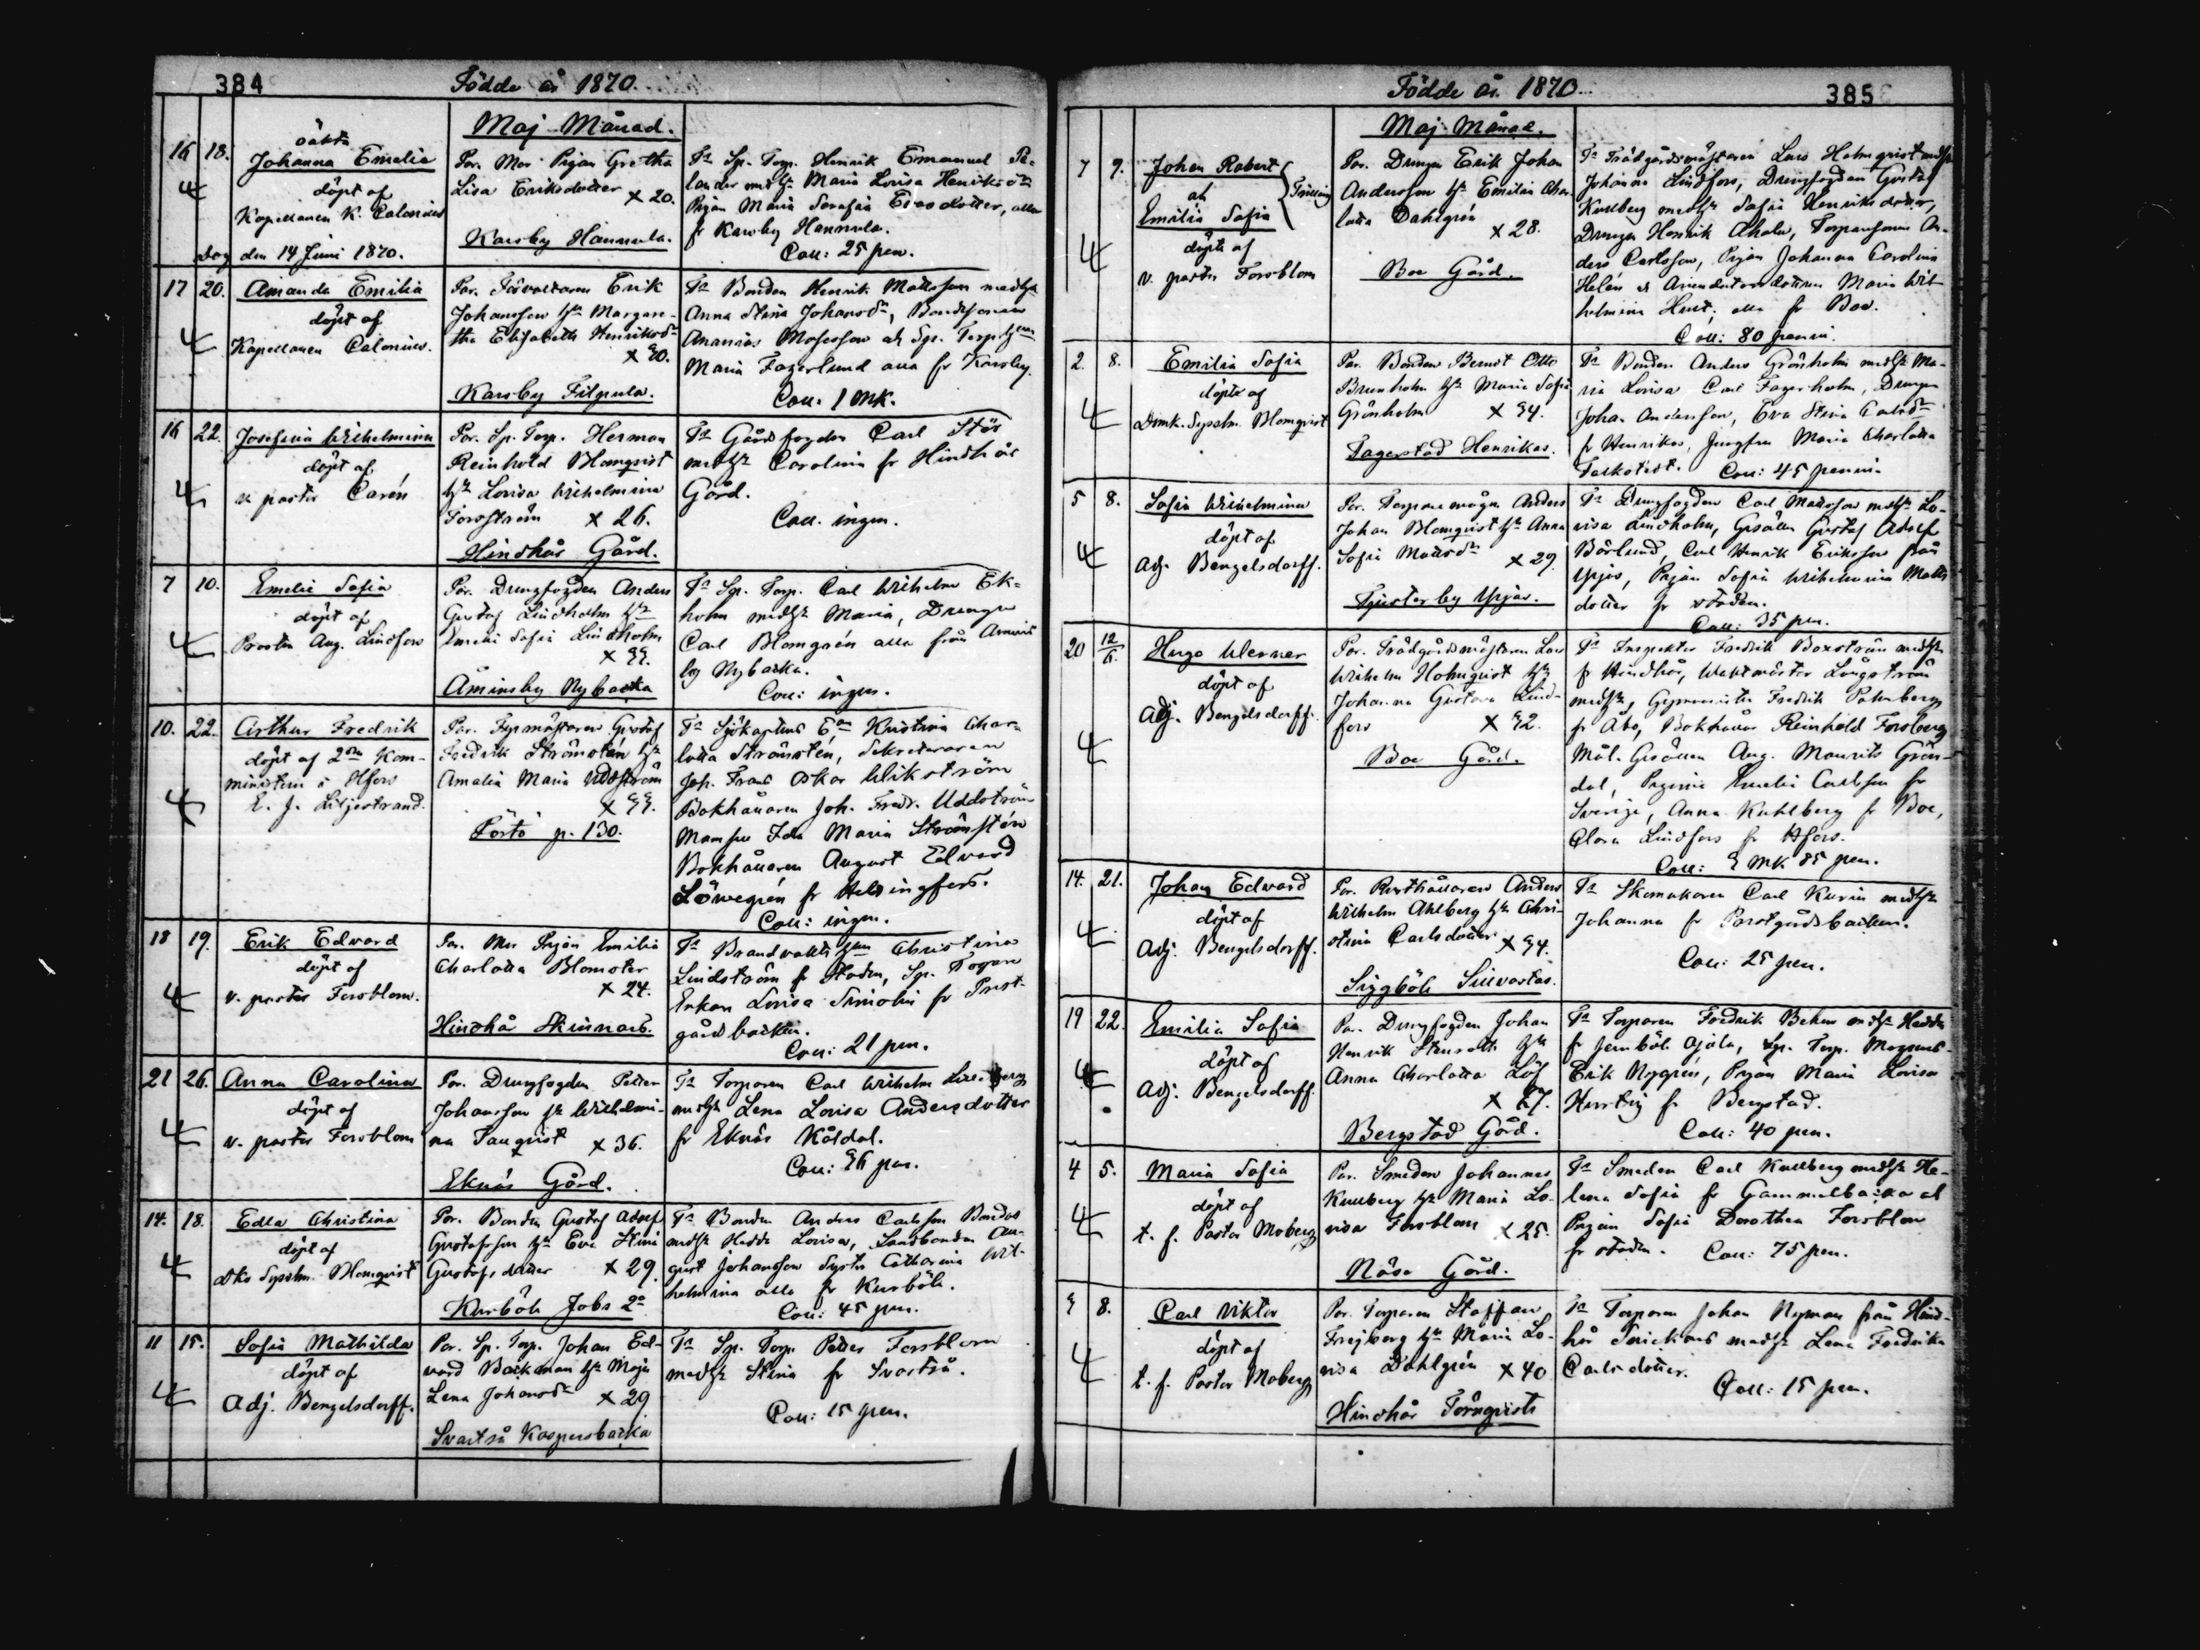 384
Födde år 1870.
Maj Månad.
16 18. oäkta
Johanna Emelia
döpt af
Kapellanen K. Calonius
dog den 14 Juni 1870.
För. Mor Pigan Gretha
Lisa Eriksdotter × 20.
Karsby Hannula.
Fa Sp. Torp. Henrik Emanuel
Maria Lovisa Henriksdr
Pigan Maria Serafia Evasdotter, alla
fr Karsby Hannula.
Coll: 25 pen.
17 20. Amanda Emilia
döpt af
Kapellanen Calonius.
För. Förvaltaren Erik
Johansson h. Margare-
tha Elisabeth Henriksdr
× 30.
Karsby Filpula.
Fa Bonden Henrik Mattsson medh
Anna Stina Johansdr, Bondsonen
Ananias Mosesson och Sp. Torp
Maria Fagerlund alla fr Karsby.
Coll. 1 mk.
16 22. Josefina Wilhelmina
döpt af
v. pastor Carén
För. Sp. Torp. Herman
Reinhold Blomqvist
h. Lovisa Wilhelmina
Forsström × 26.
Hindhår Gård.
Fa Gårdsfogden Carl Stör
medh Carolina fr Hindhår
Gård.
Coll. ingen.
7 10. Emelie Sofia
döpt af
Prosten Aug. Lindfors
För. Drengfogden Anders
Gustaf Lindholm h.
Emelie Sofia Lindholm
× 33.
Åminsby Nybacka
Fa Sp. Torp. Carl Wilhelm Ek-
holm medh Maria, Drengen
Carl Blomgrén alla från Åmins
by Nybacka.
Coll: ingen.
10. 22. Arthur Fredrik
döpt af 2dra Kom-
ministern i Hfors
L. J. Liljestrand.
För. Fyrmästaren Gustaf
Fredrik Strömstén h.
Amalia Maria Uddström
× 33.
Pörtö p. 130.
Fa Sjökaptens Kristina Char-
lotta Strömstén, Sekreteraren
Joh. Frans Oskar Wikström
Bokhållaren Joh. Fredr. Uddström
Mamsell Ida Maria Strömstén
Bokhållaren August Edvard
Löwegrén fr Helsingfors.
Coll: ingen.
18 19. Erik Edvard
döpt af
v. pastor Forsblom.
För. Mor Pigan Emilia
Charlotta Blomster
× 24.
Hindhår Skinnars.
Fa Brandvakts Christina
Lindström fr Staden, Sp. Torpare
Enkan Lovisa Smolin fr Prest-
gårdsbacken.
Coll: 21 pen.
21 26. Anna Carolina
döpt af
v. pastor Forsblom
För. Drengfogden Petter
Johansson h. Wilhelmi-
na Tauqvist × 36.
Eknäs Gård.
Fa Torparen Carl Wilhelm
medh Lena Lovisa Andersdotter
fr Eknäs Kåldal.
Coll: 36 pen.
14. 18. Edla Christina
döpt af
Sysslm. Blomqvist
För. Bonden Gustaf Adolf
Gustafsson h. Eva Stina
Gustafsdotter × 29.
Kurböle Jobs
Fa Bonden Anders Carlsson Bondas
medh Hedda Lovisa, Landbonden Au-
gust Johansson Syster Catharina Wil-
helmina alla fr Kurböle.
Coll: 45 pen.
11 15. Sofia Mathilda
döpt af
Adj. Bengelsdorff.
För. Sp. Torp. Johan Ed-
vard Backman h. Maja
Lena Johansdr × 29
Svartså Kaspersbacka
Fa Sp. Torp. Petter Forsblom
medh Stina fr Svartså.
Coll: 15 pen.
Födde år 1870.
385
Maj Månad.
7 9. Johan Robert
och
Emilia Sofia
Tvilling
döpte af
v. pastor Forsblom
För. Drengen Erik Johan
Andersson h. Emilia Char-
lotta Dahlgrén
× 28.
Boe Gård.
Fa Trädgårdsmästaren Lars Holmqvist medh
Johanna Lindfors, Drengfogden Gustaf
Kullberg medh Sofia Henriksdotter,
Drengen Henrik Ahola, Torparesonen An-
ders Carlsson, Pigan Johanna Carolina
Helén och Arrendatorsdottern Maria Wil-
helmina Hurt, alla fr Boe.
Coll: 80 penni.
2. 8. Emilia Sofia
döpt af
Domk. Syssm. Blomqvist
För. Bonden Berndt Otto
Brunholm h. Maria Sofia
Grönholm × 34.
Fagerstad Henrikas.
Fa Bonden Anders Grönholm medh Ma-
ria Lovisa Carl Fagerholm, Drengen
Johan Andersson, Eva Stina
fr Henrikas, Jungfru Maria Charlotta
Coll: 45 penni.
5 8. Sofia Wilhelmina
döpt af
Adj. Bengelsdorff.
För. Torparemågen Anders
Johan Blomqvist h. Anna
Sofia Mattsdr
× 29.
Tjusterby Ypjas.
Fa Drengfogden Carl Mattsson medh Lo-
visa Lindholm, Gesällen Gustaf Adolf
Börlund, Carl Henrik Eriksson från
Ypjas, Pigan Sofia Wilhelmina Matts
dotter fr staden.
Coll: 35 pen.
20 12/6. Hugo Werner
döpt af
Adj. Bengelsdorff.
För. Trädgårdsmästaren Lars
Wilhelm Holmqvist h.
Johanna Gustava Lind-
fors × 32.
Boe Gård.
Fa Inspektor Fredrik Boxström medh
fr Hindhår, Waktmäster Långström
medh, Gymnasisten Fredrik Palmberg
fr Åbo, Bokhållar Reinhold Forsberg
Mål. Gesällen Aug. Maurits Grön-
dal, Pigorna Emelie Carlsson fr
Sverige, Anna Kuhlberg fr Boe,
Clara Lindfors fr Hfors.
Coll: 3 mk 85 pen.
14. 21. Johan Edward
döpt af
Adj. Bengelsdorff.
För. Rusthållaren Anders
Wilhelm Ahlberg h. Chri-
stina Carlsdotter × 34.
Siggböle Sillvastas.
Fa Skomakaren Carl Kurin medh
Johanna fr Prostgårdsbacken.
Coll: 25 pen.
19 22. Emilia Sofia
döpt af
Adj. Bengelsdorff.
För. Drengfogden Johan
Henrik Stenroth h.
Anna Charlotta Löf
× 27.
Bergstad Gård.
Fa Torparen Fredrik Behm medh Hedda
fr Jernböle Ojala, Sp. Torp. Magnus-
Erik Nygrén, Pigan Maria Lovisa
fr Bergstad.
Coll: 40 pen.
4 5. Maria Sofia
döpt af
t. f. Pastor Moberg
För. Smeden Johannes
Kullberg h. Maria Lo-
visa Forsblom × 25.
Näse Gård.
Fa Smeden Carl Kullberg medh He-
lena Sofia fr Gammelbacka och
Pigan Sofia Dorothea Forsblom
fr staden. Coll: 75 pen.
3 8. Carl Viktor
döpt af
t. f. Pastor Moberg
För. Torparen Staffan
Frejberg h. Maria Lo-
visa Dahlgrén × 40
Hindhår Törnqvists
Fa Torparen Johan Nyman från Hind-
hår medh Lena Fredrika
Carlsdotter.
Coll: 15 pen.